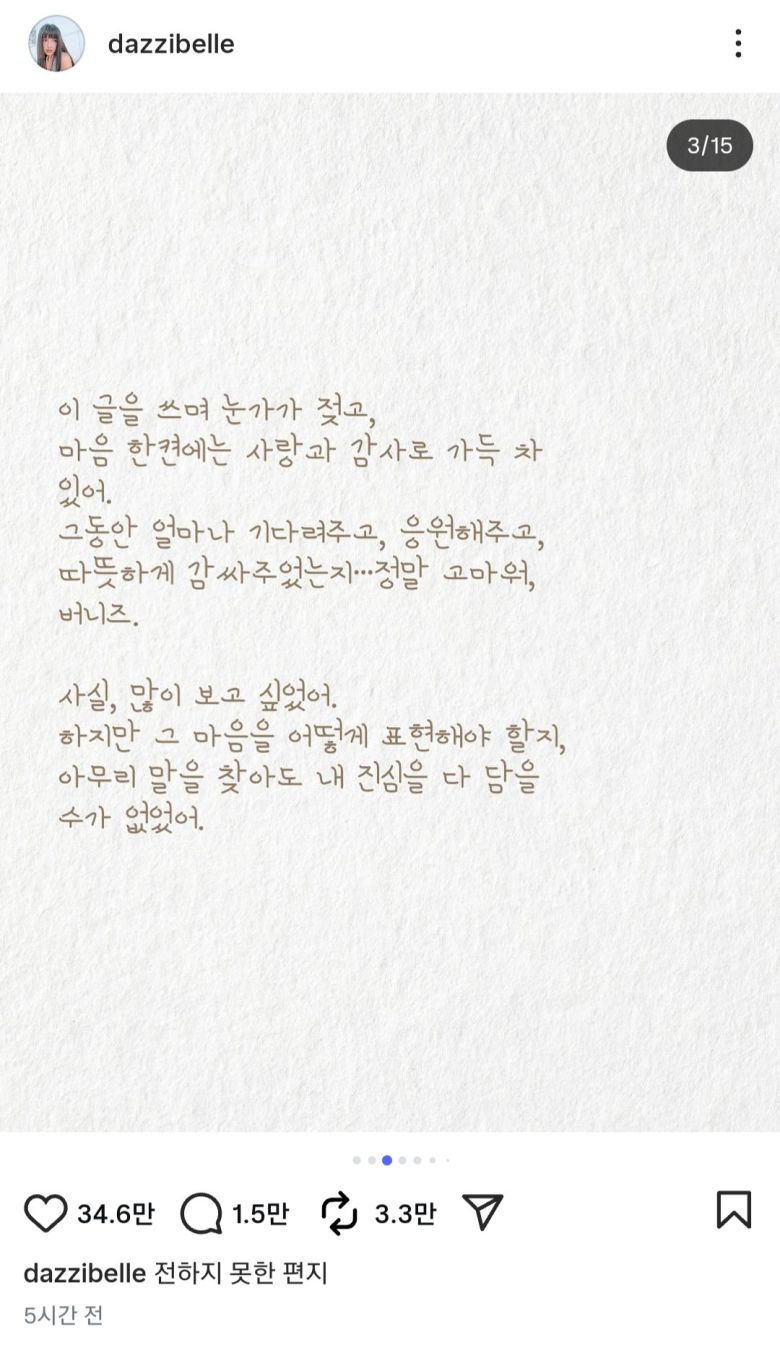 dazzibelle
3/15
이 글을 쓰며 눈가가 젖고,
마음 한켠에는 사랑과 감사로 가득 차
있어.
그동안 얼마나 기다려주고, 응원해주고,
따뜻하게 감싸주었는지…정말 고마워,
버니즈.
사실, 많이 보고 싶었어.
하지만 그 마음을 어떻게 표현해야 할지,
아무리 말을 찾아도 내 진심을 다 담을
수가 없었어.
34.6만 1.5만 3.3만
dazzibelle 전하지 못한 편지
5시간 전